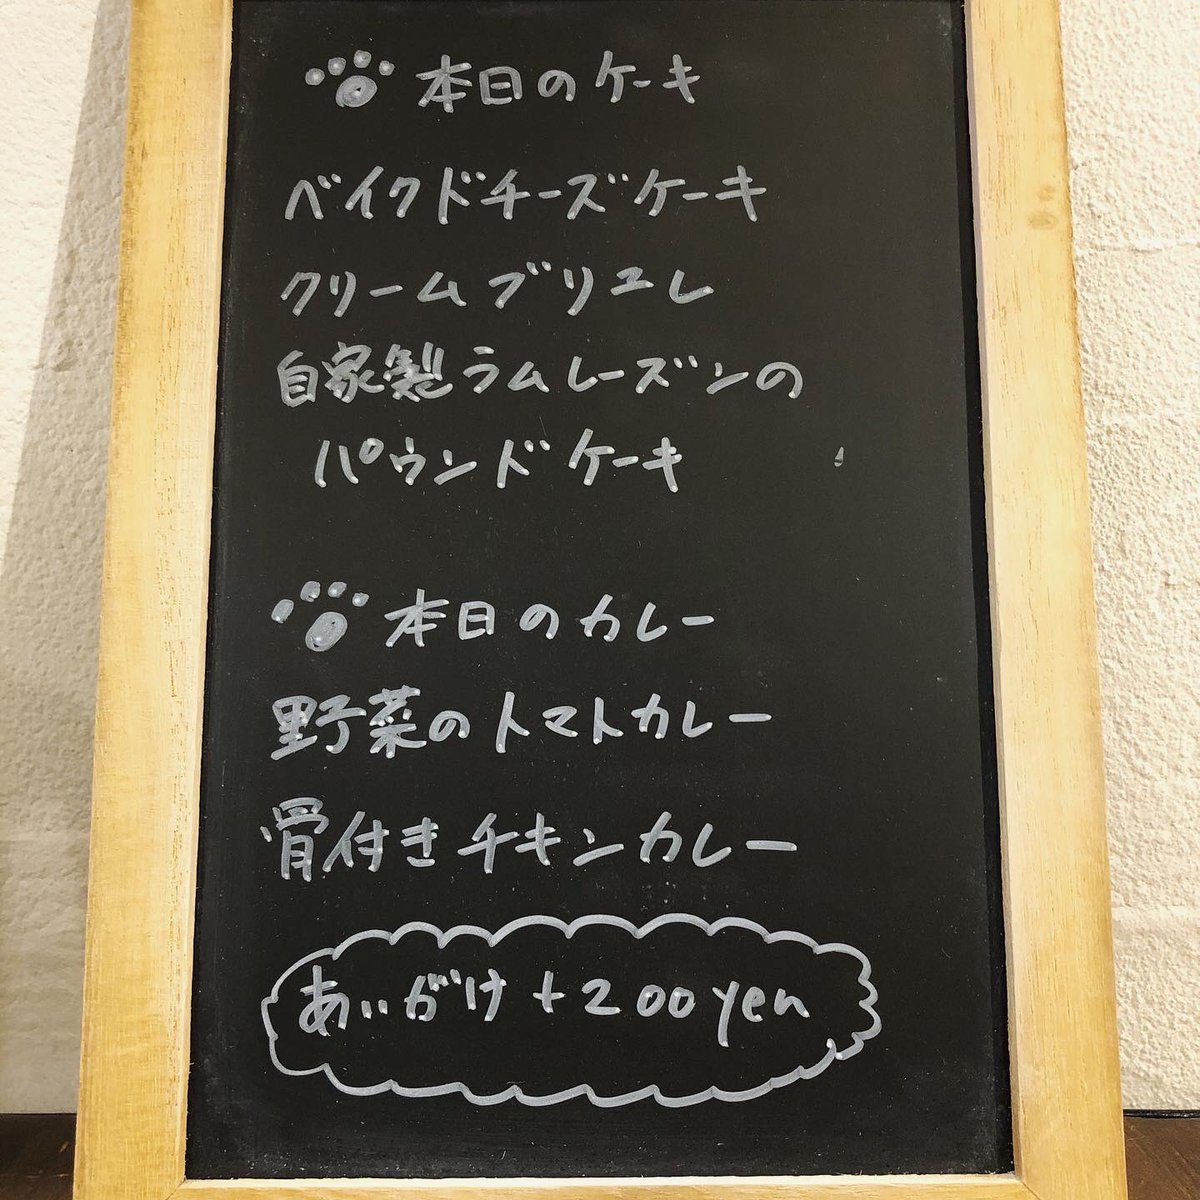 本日のケーキ
ベイクドチーズケーキ
クリームブリュレ
自家製ラムレーズンの
パウンドケーキ
本日のカレー
野菜のトマトカレー
骨付きチキンカレー
あいがけ+200yen